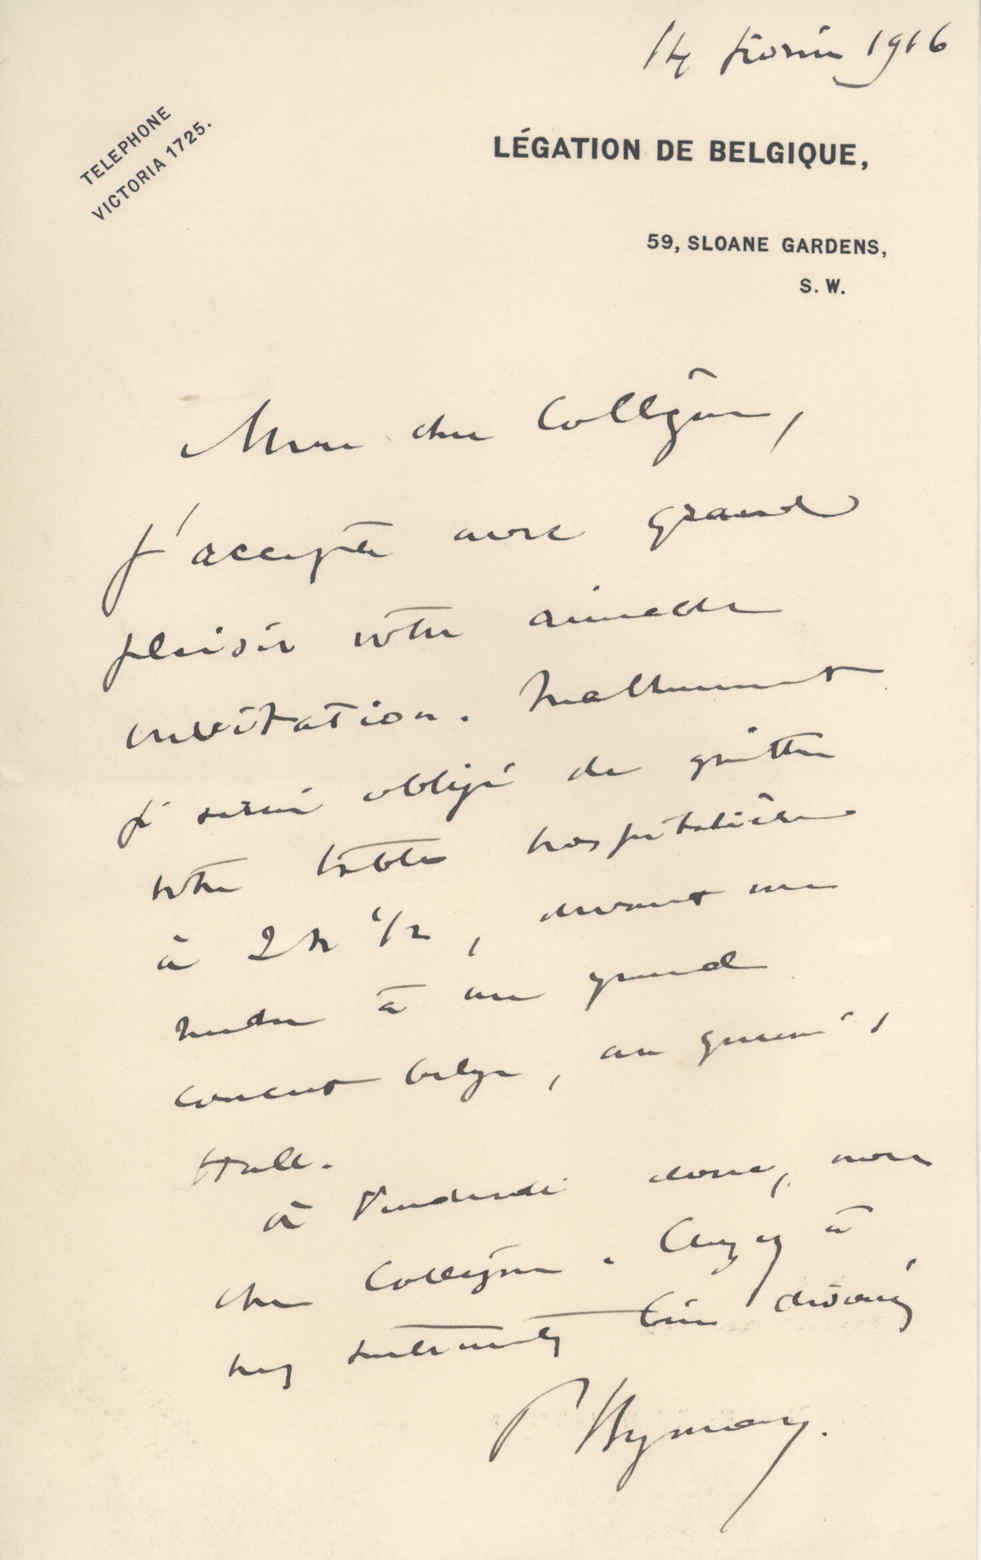 14 février 1916
TELEPHONE
VICTORIA 1725.
LÉGATION DE BELGIQUE,
59, SLOANE GARDENS,
S. W.
Mon cher Collègue,
J'accepte avec grand
plaisir votre aimable
invitation. Malheureusement
je serai obligé de quitter
votre table hospitalière
à 2 h 1/2, devant me
rendre à un grand
concert belge, au Queen's
Hall.
à Vendredi donc, mon
cher Collègue. Croyez à
mes sentiments bien dévoués
P Hymans.